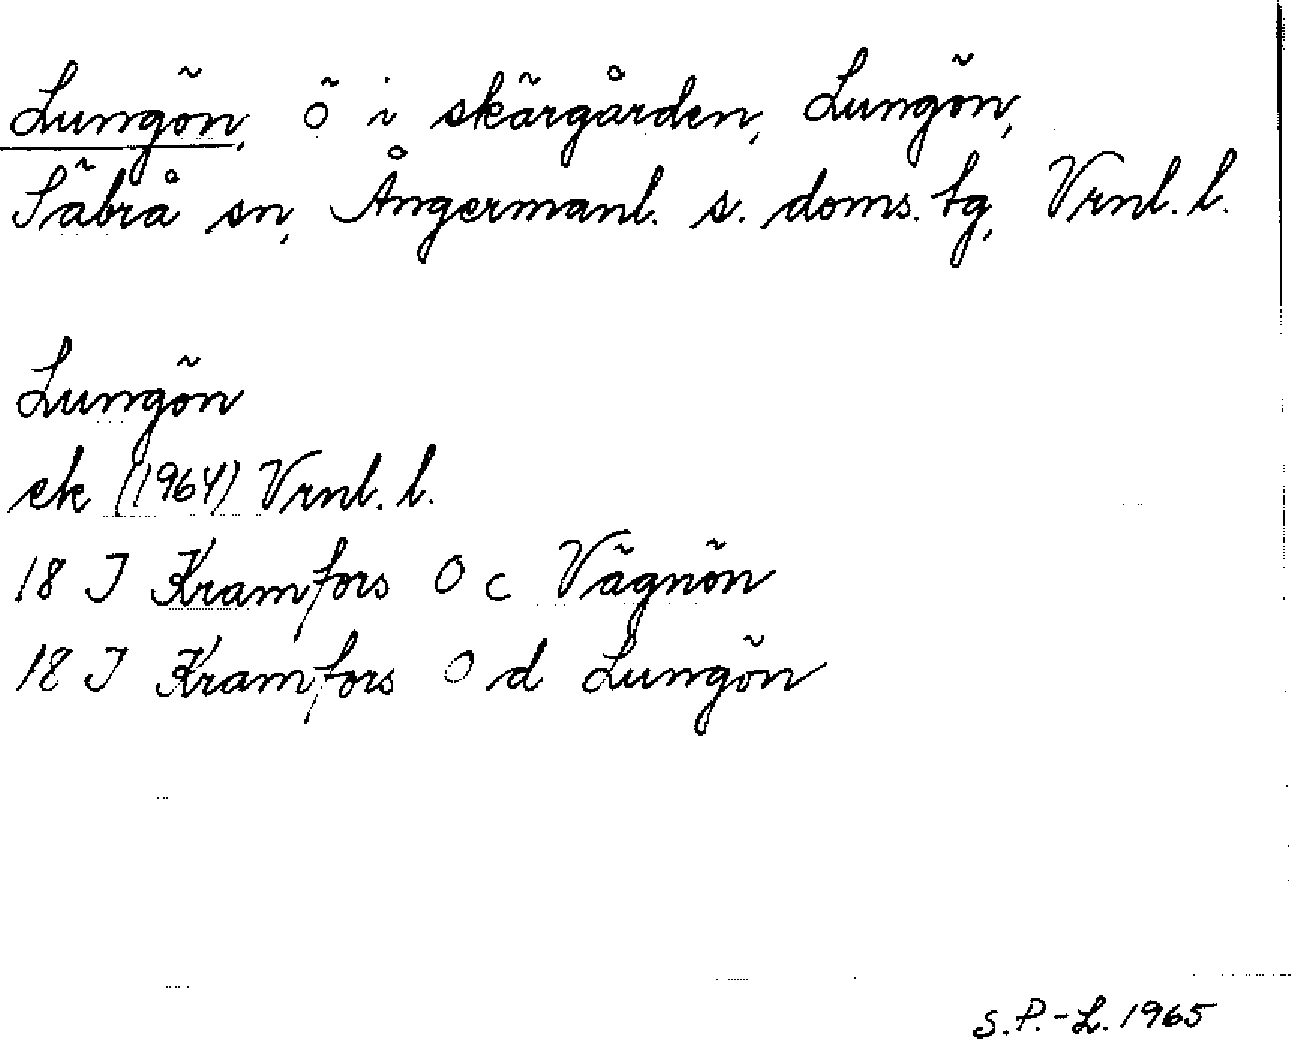 Lungön, ö i skärgården, Lungön,
Säbrå sn, Ångermanl. s. doms. tg, Vrnl. l.
Lungön
ek (1964) Vrnl. l.
18 I Kramfors O c Vägnön
18 I Kramfors O d Lungön
S.P.-L. 1965